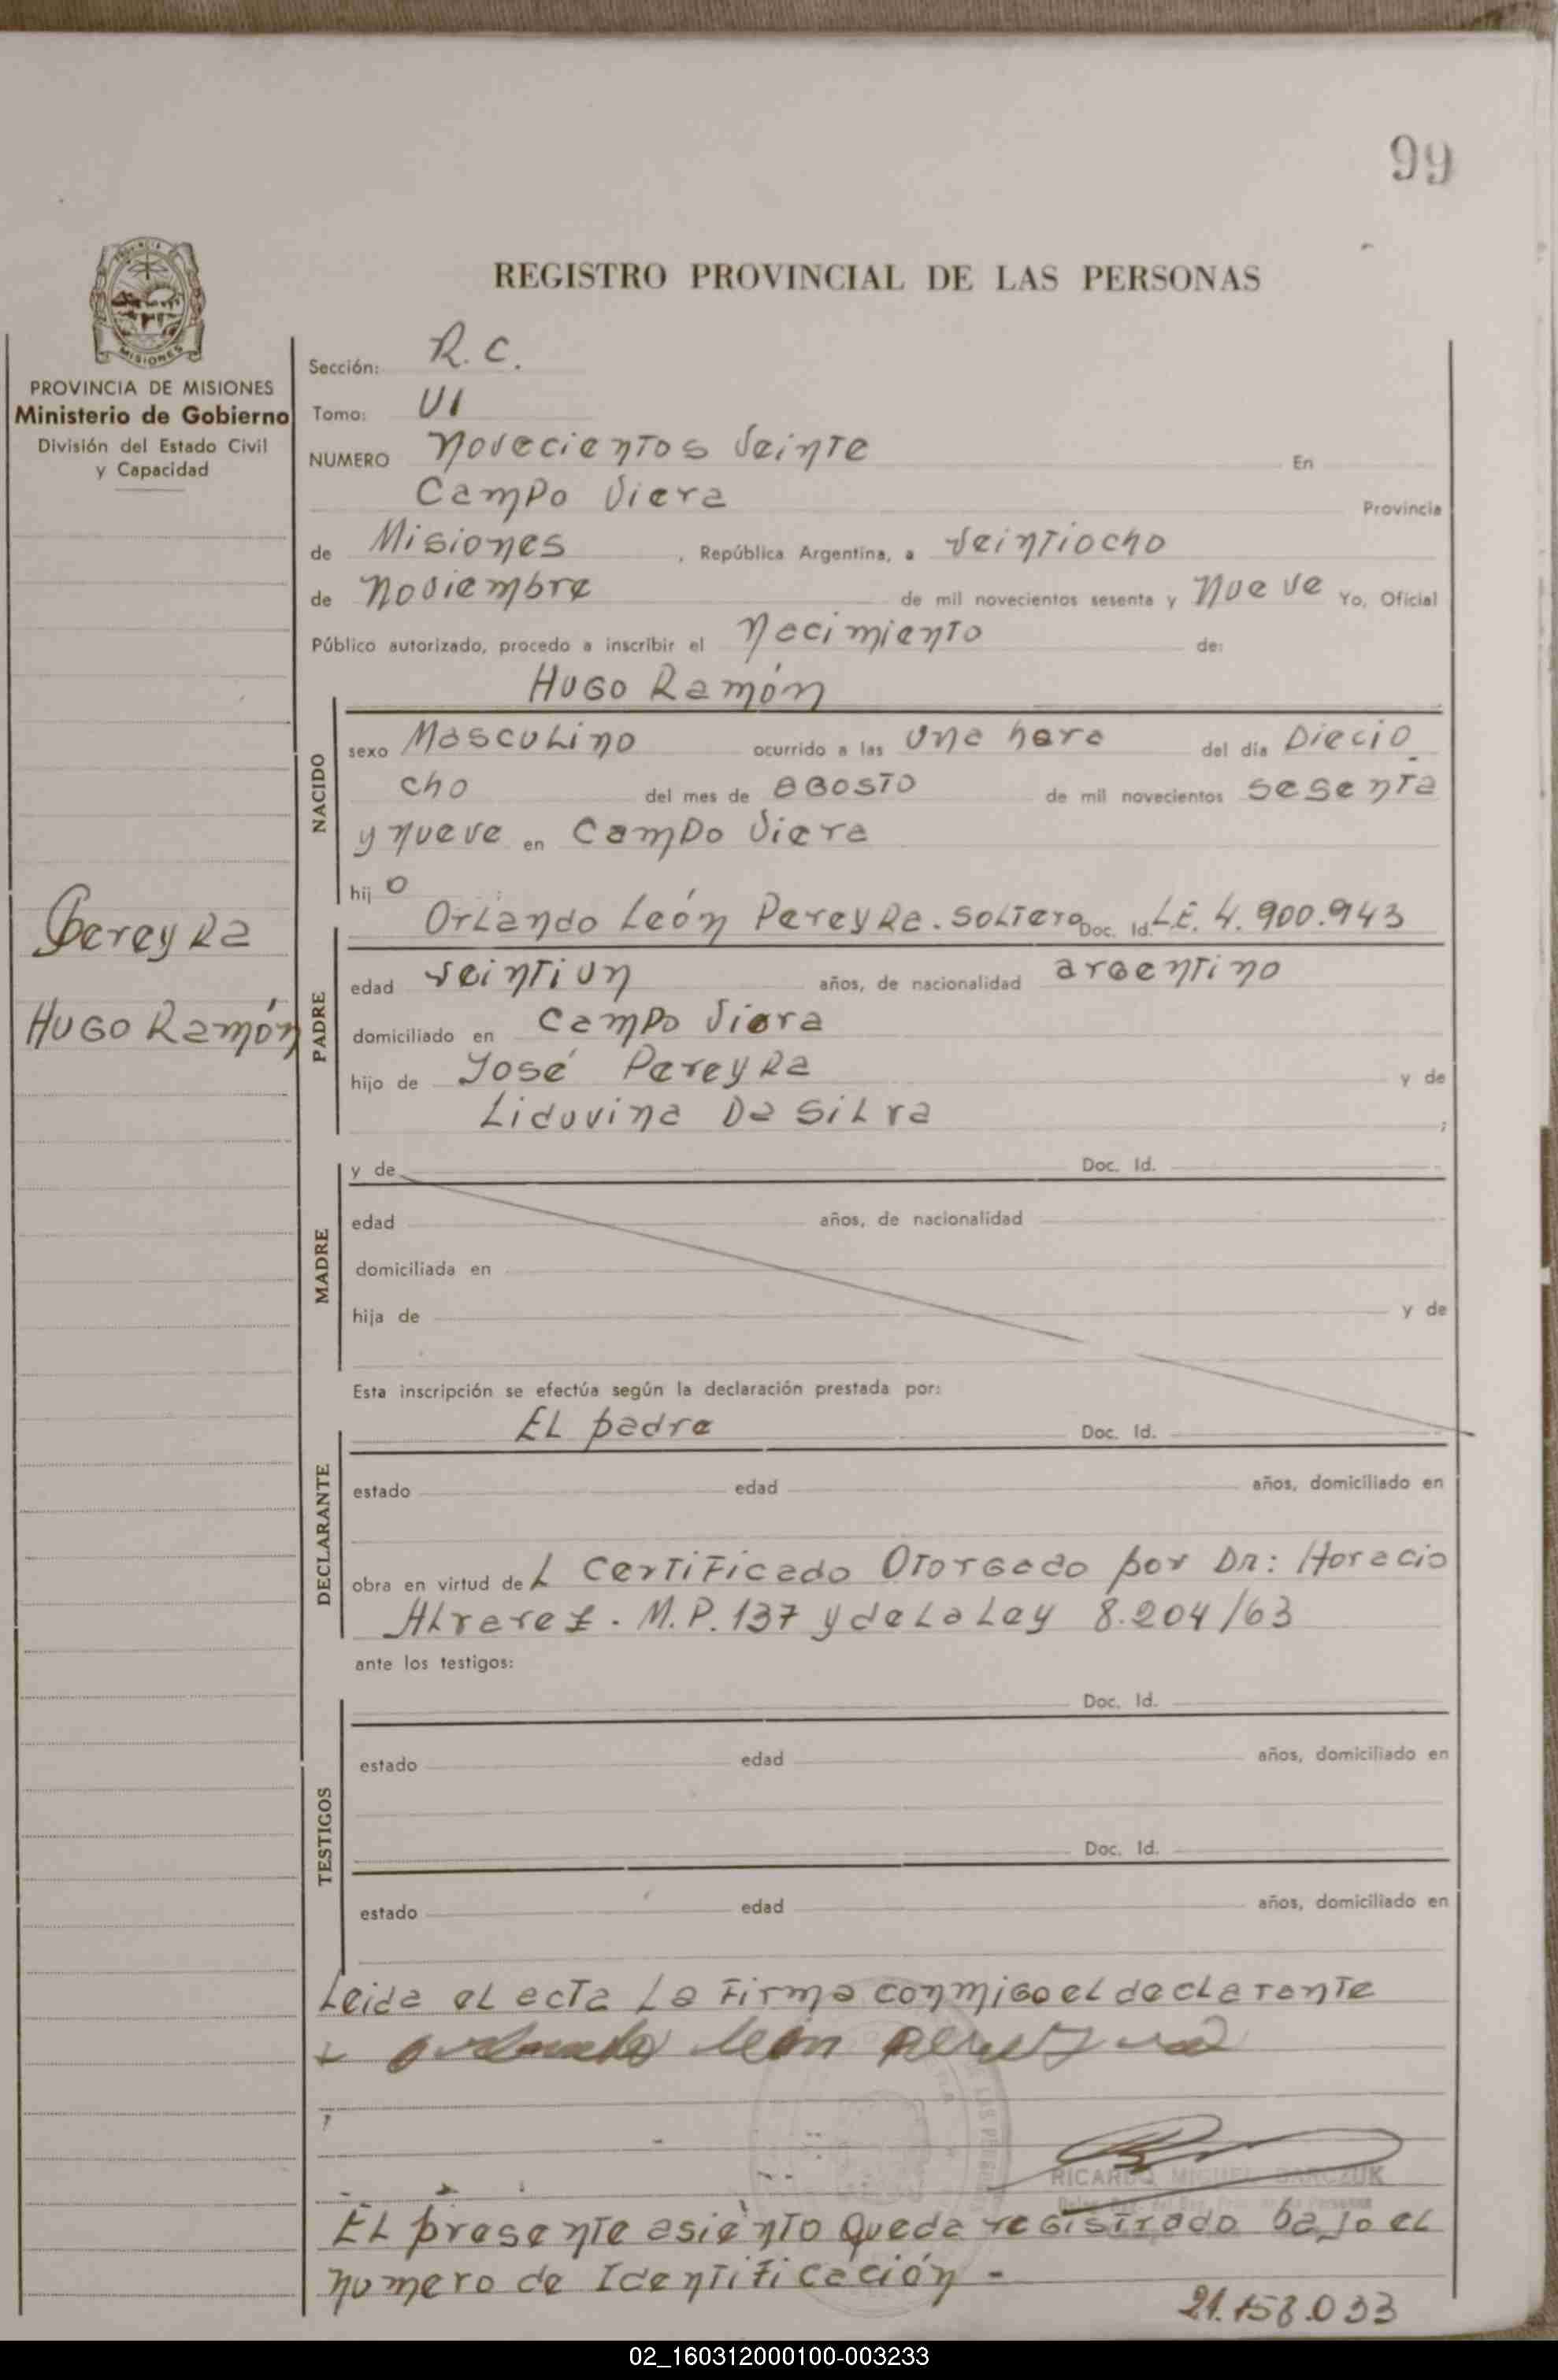 99
PROVINCIA
MISIONES
PROVINCIA DE MISIONES
Ministerio de Gobierno
División del Estado Civil
y Capacidad
REGISTRO PROVINCIAL DE LAS PERSONAS
Sección: R.C.
Tomo: VI
NUMERO Novecientos Veinte En
Campo Viera Provincia
de Misiones, República Argentina, a Veintiocho
de Noviembre de mil novecientos sesenta y Nueve Yo, Oficial
Público autorizado, procedo a inscribir el Nacimiento de:
Hugo Ramón
NACIDO
sexo Masculino ocurrido a las Una hora del día Diecio
cho del mes de Agosto de mil novecientos sesenta
y nueve en Campo Viera
hijo
Pereyra
Hugo Ramón
PADRE
Orlando León Pereyra. soltero Doc. Id. L.E. 4.900.943
edad veintiun años, de nacionalidad argentino
domiciliado en Campo Viera
hijo de José Pereyra y de
Liduvina Da Silva ;
MADRE
y de Doc. Id.
edad años, de nacionalidad
domiciliada en
hija de y de
Esta inscripción se efectúa según la declaración prestada por:
DECLARANTE
El padre Doc. Id.
estado edad años, domiciliado en
obra en virtud del Certificado Otorgado por Dr: Horacio
Alvarez. M.P. 137 y de La Ley 8.204/63
ante los testigos:
TESTIGOS
Doc. Id.
estado edad años, domiciliado en
Doc. Id.
estado edad años, domiciliado en
Leida el acta La Firma conmigo el declarante
orlando león pereyra
RICARDO MIGUEL
El presente asiento queda registrado bajo el
numero de Identificación -
21.158.033
02_160312000100-003233